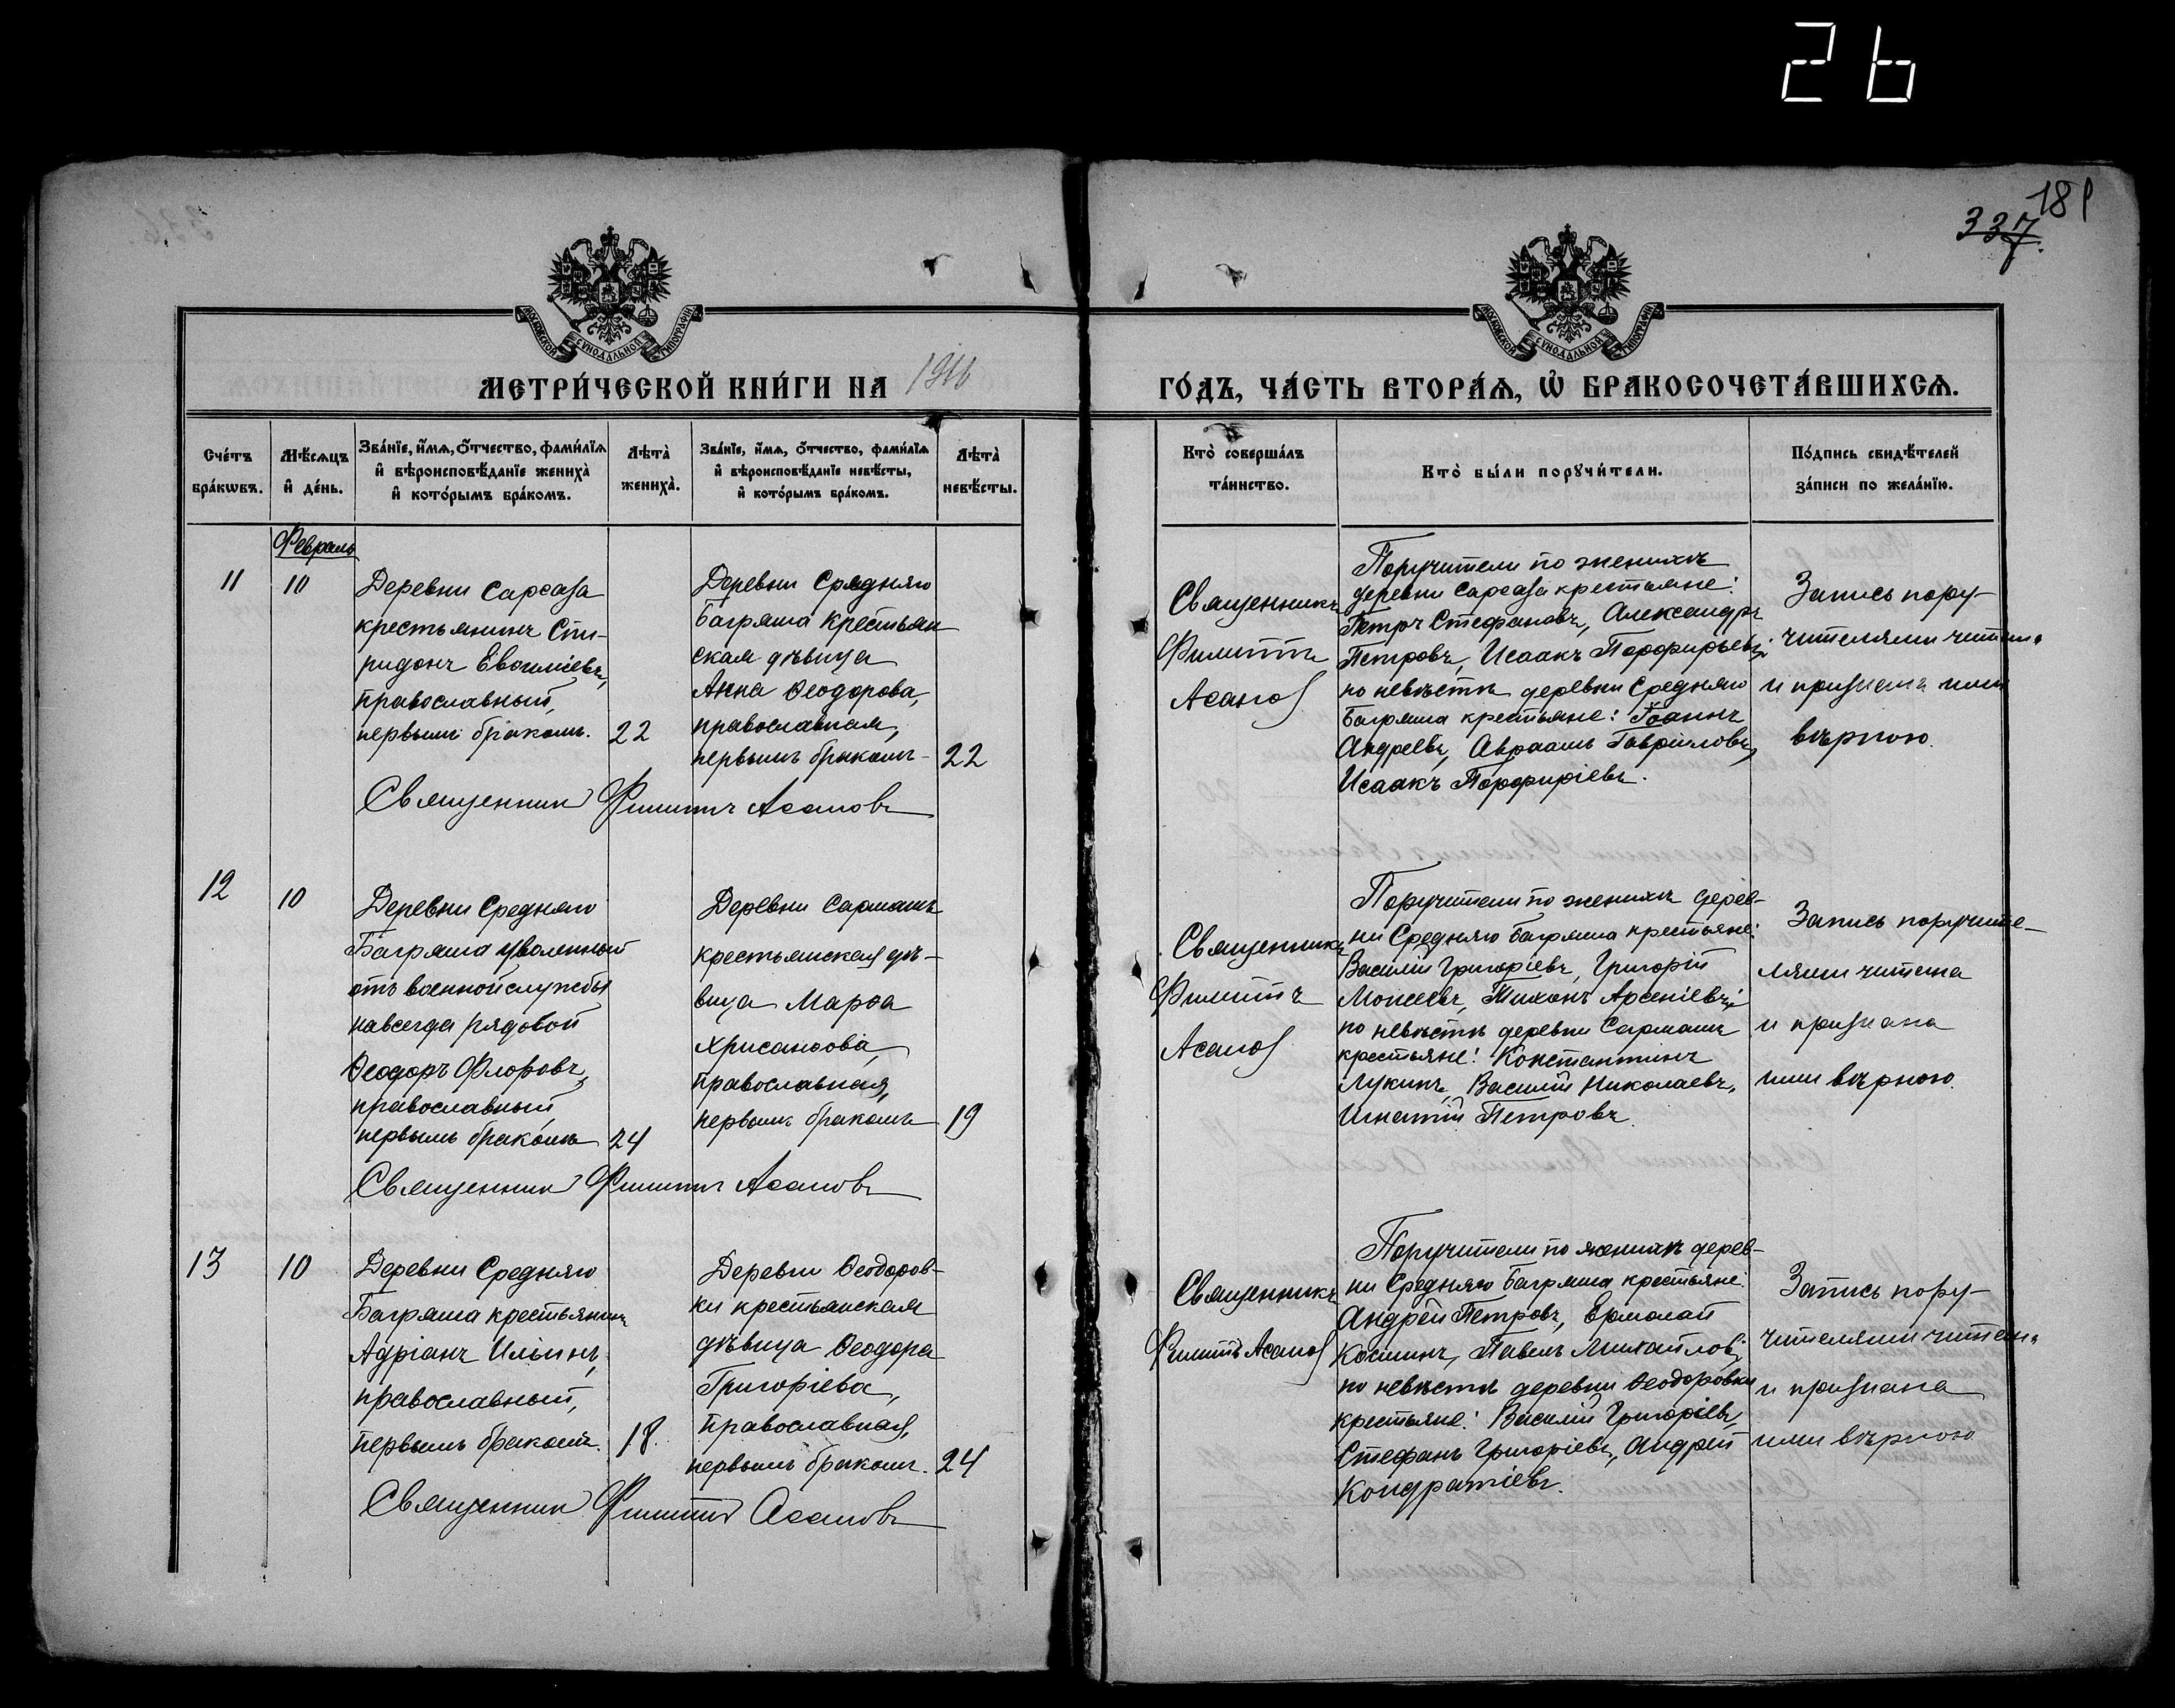 26
181
337.
МОСКОВСКОЙ СѴНОДАЛЬНОЙ ТИПОГРАФІИ
МОСКОВСКОЙ СѴНОДАЛЬНОЙ ТИПОГРАФІИ
МЕТРИ́ЧЕСКОЙ КНИ́ГИ НА 1916
ГО́ДЪ, ЧА́СТЬ ВТОРА́Ѧ, Ѿ БРАКОСОЧЕТА́ВШИХСѦ.
Сче́тъ
бра́кѡвъ.
Мѣ́сѧцъ
и҆ де́нь.
Зва́нїе, и҆́мѧ, ѻ҆́тчество, фами́лїѧ
и҆ вѣроисповѣ́данїе жениха̀
и҆ кото́рымъ бра́комъ.
Лѣта̀
жениха̀.
Зва́нїе, и҆́мѧ, ѻ҆́тчество, фами́лїѧ
и҆ вѣроисповѣ́данїе невѣ́сты,
и҆ кото́рымъ бра́комъ.
Лѣта̀
невѣ́сты.
Кто̀ соверша́лъ
та́инство.
Кто̀ бы́ли порꙋчи́тели.
По́дпись свидѣ́телей
за́писи по жела́нїю.
Февраль
11
10
Деревни Сарсаза
крестьянинъ Спи-
ридонъ Евѳиміевъ,
православный,
первымъ бракомъ.
22
Деревни Средняго
Багряша крестьян
ская дѣвица
Анна Ѳеодорова,
православная,
первымъ бракомъ
22
Священникъ Филиппъ Асановъ
Священникъ
Филиппъ
Асановъ
Поручители по женихѣ
деревни Сарсаза крестьяне:
Петръ Стефановъ, Александръ
Петровъ, Исаакъ Порфирьевъ;
по невѣстѣ деревни Средняго
Багряша крестьяне: Іоаннъ
Андреевъ, Авраамъ Гавриловъ,
Исаакъ Порфиріевъ.
Запись пору-
чителями читана
и признана ими
вѣрною.
12
10
Деревни Средняго
Багряша уволенный
отъ военной службы
навсегда рядовой
Ѳеодоръ Флоровъ,
православный,
первымъ бракомъ
24
Деревни Сармашъ
крестьянская дѣ-
вица Марѳа
Хрисанѳова,
православная,
первымъ бракомъ
19
Священникъ Филиппъ Асановъ
Священникъ
Филиппъ
Асановъ
Поручители по женихѣ дерев-
ни Средняго Багряша крестьяне:
Василій Григоріевъ, Григорій
Моисеевъ, Тихонъ Арсеніевъ;
по невѣстѣ деревни Сармашъ
крестьяне: Константинъ
Лукинъ, Василій Николаевъ,
Игнатій Петровъ.
Запись поручите-
лями читана
и признана
ими вѣрною.
13
10
Деревни Средняго
Багряша крестьянинъ
Адріанъ Ильинъ,
православный,
первымъ бракомъ.
18.
Деревни Ѳеодоров-
ки крестьянская
дѣвица Ѳеодора
Григоріева,
православная,
первымъ бракомъ.
24
Священникъ Филиппъ Асановъ
Священникъ
Филиппъ Асановъ
Поручители по женихѣ дерев-
ни Средняго Багряша крестьяне:
Андрей Петровъ, Ермолай
Косминъ, Павелъ Михайловъ;
по невѣстѣ деревни Ѳеодоровки
крестьяне: Василій Григоріевъ,
Стефанъ Григоріевъ, Андрей
Кондратіевъ.
Запись пору-
чителями читана
и признана
ими вѣрною